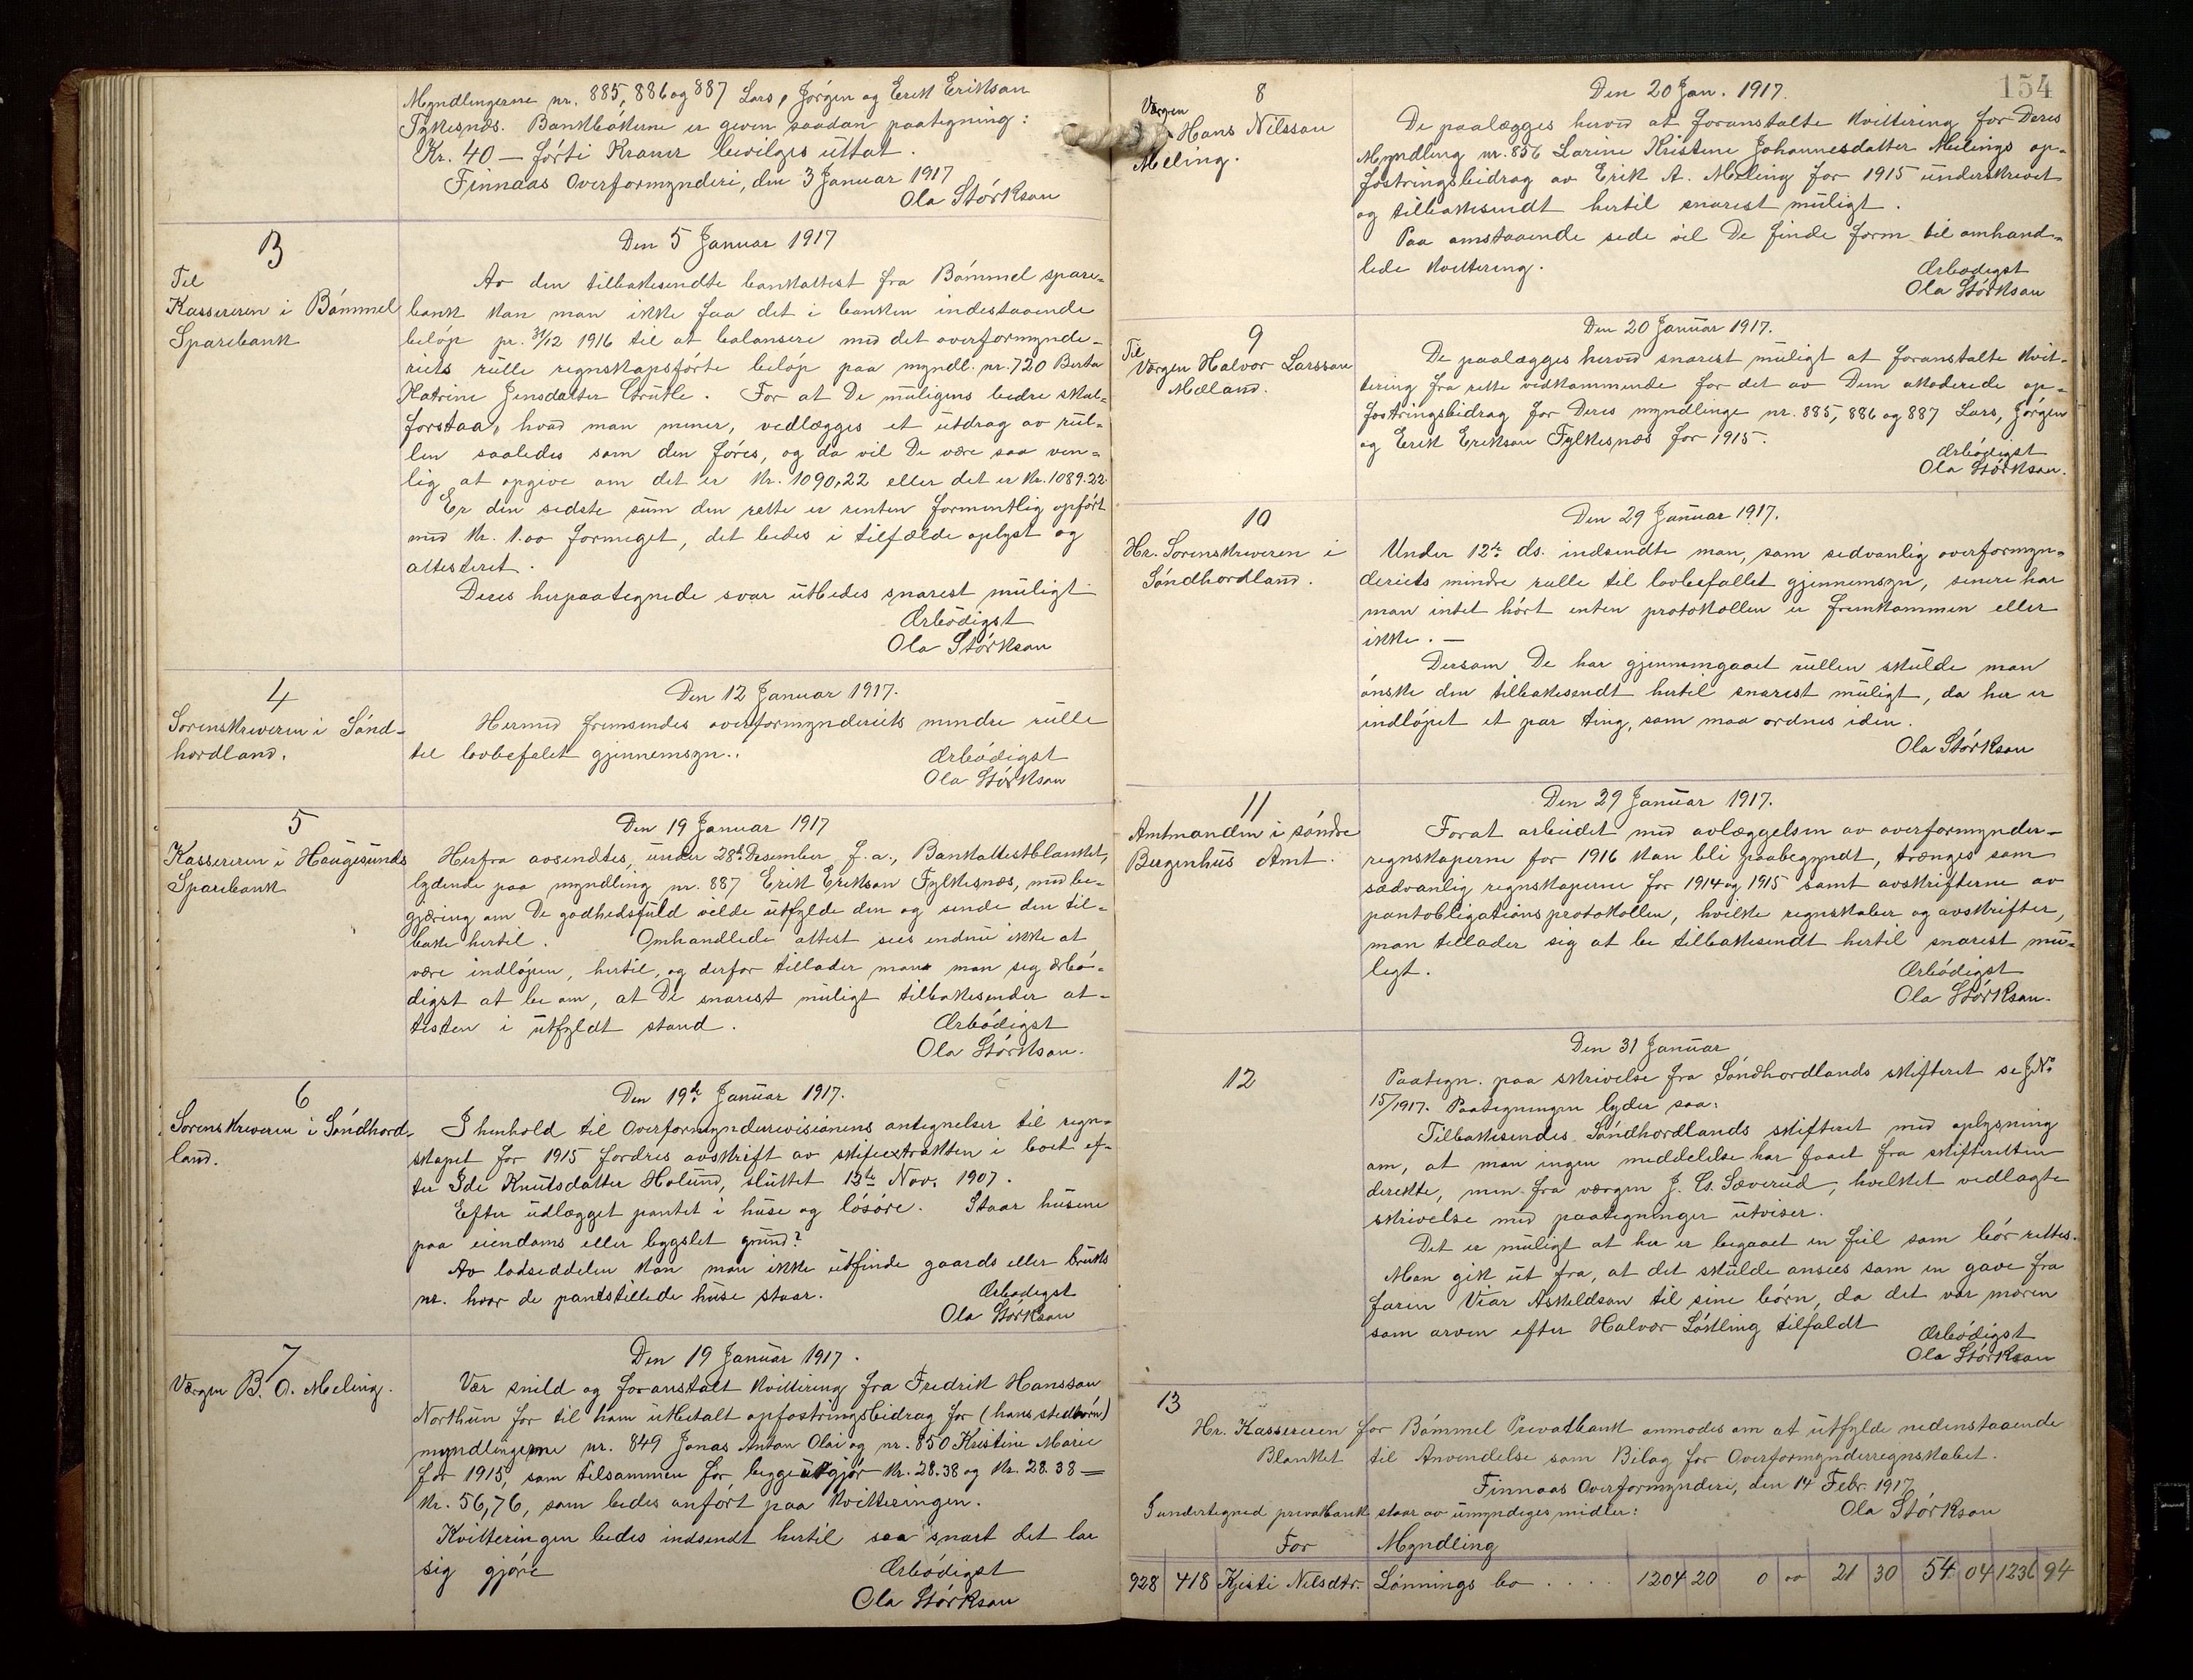 Myndlingerne nr. 885, 886 og 887 Lars, Jörgen og Erik Erikson
Fylkesnæs. Bankbökerne er given saadan paategning:
Kr. 40 — förti Kroner bevilges uttat.
Finnaas Overformynderi, den 3 Januar 1917
Ola Störkson
3
Til
Kassereren i Bömmel
Sparebank
Den 5 Januar 1917
Av den tilbakesendte bankattest fra Bömmel spare-
bank kan man ikke faa det i banken indestaaende
belöp pr. 31/12 1916 til at balansere med det overformynde-
riets rulle regnskapsförte belöp paa myndl. nr. 720 Berta
Katrine Jensdatter Grutle. For at De muligens bedre skal
forstaa, hvad man mener, vedlægges et utdrag av rul-
len saaledes som den föres, og da vil De være saa ven-
lig at opgive om det er Kr. 1090,22 eller det er Kr. 1089.22.
Er den sidste sum den rette er renten formentlig opfört
med Kr. 1.00 formeget, det bedes i tilfælde oplyst og
attesteret.
Deres herpaategnede svar utbedes snarest muligt
Ærbödigst
Ola Störkson
4
Sorenskriveren i Sönd-
hordland.
Den 12 Januar 1917.
Hermed fremsendes overformynderiets mindre rulle
til lovbefalet gjennemsyn.
Ærbödigst
Ola Störkson
5
Kassereren i Haugesunds
Sparebank
Den 19 Januar 1917
Herfra avsendtes, under 28de Desember f. a., Bankattestblanket,
lydende paa myndling nr. 887 Erik Erikson Fylkesnæs, med be-
gjæring om De godhedsfuld vilde utfylde den og sende den til-
bake hertil. Omhandlede attest sees endnu ikke at
være indlöpen, hertil, og derfor tillader man man seg ærbö-
digst at be om, at De snarest muligt tilbakesender at-
testen i utfyldt stand.
Ærbödigst
Ola Störkson.
6
Sorenskriveren i Söndhord-
land.
Den 19de Januar 1917.
I henhold til Overformynderrevisionens antegnelser til regn-
skapet for 1915 fordres avskrift av skifteextrakten i boet ef-
ter Ide Knutsdatter Holund, sluttet 13de Nov. 1907.
Efter udlægget pantet i huse og lösöre. Staar husene
paa eiendoms eller bygslet grund?
Av lodseddelen kan man ikke utfinde gaards eller bruks
nr. hvor de pantstillede huse staar.
Ærbodigst
Ola Störkson
7
Værgen B. O. Meling.
Den 19 Januar 1917.
Vær snild og foranstalt kvittering fra Fredrik Hansson
Northun for til ham utbetalt opfostringsbidrag for (hans stedbörn)
myndlingerne nr. 849 Jonas Anton Olai og nr. 850 Kristine Marie
for 1915, som tilsammen for begge utgjör Kr. 28.38 og Kr. 28.38 —
Kr. 56,76, som bedes anfört paa kvitteringen.
Kvitteringen bedes indsendt hertil saa snart det lar
sig gjöre
Ærbödigst
Ola Störkson
154
8
Værgen
Hans Nilsson
Meling.
Den 20 Jan. 1917.
De paalægges herved at foranstalte kvittering for Deres
Myndling nr. 856 Larine Kristine Johannesdatter Melings op-
fostringsbidrag av Erik A. Meling for 1915 underskrevet
og tilbakesendt hertil snarest muligt.
Paa omstaaende side vil De finde form til omhand-
lede kvittering.
Ærbodigst
Ola Störkson
9
Til
Værgen Halvor Larsson
Mæland.
Den 20 Januar 1917.
De paalægges herved snarest muligt at foranstalte kvit-
tering fra rette vedkommende for det av Dem akorderede op-
fostringsbidrag for Deres myndlinge nr. 885, 886 og 887 Lars, Jörgen
og Erik Erikson Fylkesnæs for 1915.
Ærbödigst
Ola Störkson.
10
Hr. Sorenskriveren i
Söndhordland.
Den 29 Januar 1917.
Under 12te ds. indsendte man, som sedvanlig overformyn-
deriets mindre rulle til lovbefallet gjennemsyn, senere har
man intet hört enten protokollen er fremkommen eller
ikke. —
Dersom De har gjennemgaaet rullen skulde man
önske den tilbakesendt hertil snarest muligt, da her er
indlöpet et par ting, som maa ordnes iden.
Ola Störkson
11
Amtmanden i söndre
Bergenhus Amt.
Den 29 Januar 1917.
Forat arbeidet med avlæggelsen av overformynder-
regnskaperne for 1916 kan bli paabegyndt, trænges som
sædvanlig regnskaperne for 1914 og 1915 samt avskrifterne av
pantobligationsprotokollen, hvilke regnskaber og avskrifter,
man tillader sig at be tilbakesendt hertil snarest mu-
ligt.
Ærbödigst
Ola Störkson.
12
Den 31 Januar
Paategn. paa skrivelse fra Söndhordlands skifteret se J No
15/1917. Paategningen lyder saa:
Tilbakesendes Söndhordlands skifteret med oplysning
om, at man ingen meddelelse har faaet fra skifteretten
direkte, men fra værgen J. G. Sæverud, hvilket vedlagte
skrivelse med paategninger utviser.
Det er muligt at her er begaaet en feil som bör rettes.
Man gik ut fra, at det skulde ansees som en gave fra
faren Viar Askeldson til sine börn, da det var moren
som arven efter Halvor Lökling tilfaldt
Ærbödigst
Ola Störkson
13
Hr. Kassereren for Bömmel Privatbank anmodes om at utfylde nedenstaaende
Blanket til Anvendelse som Bilag for Overformynderregnskabet.
Finnaas Overformynderi, den 14 Febr. 1917
I undertegned privatbank staar av umyndiges midler:
Ola Störkson
For Myndling
928 418 Kjesti Nilsdtr. Lönnings bo . . . . 1204 20 0 00 21 30 54 04 1236 94